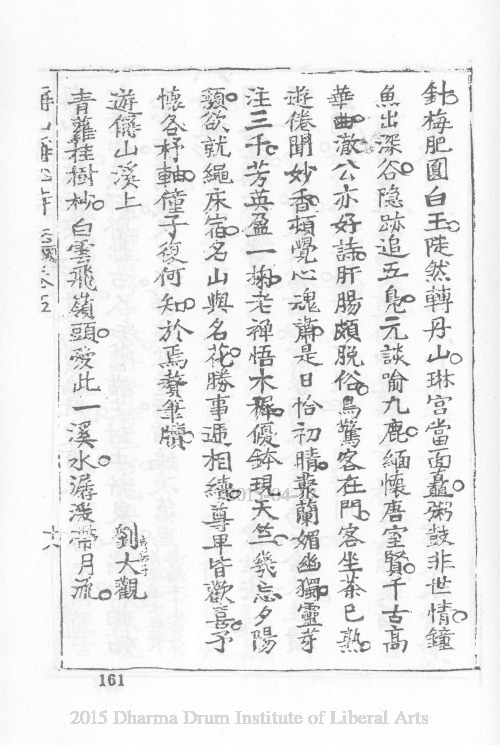 針梅肥圓白玉陡然轉丹山琳宮當面矗粥鼓非世情鐘
魚出深谷隐跡追五鳬元談喻九鹿緬懷唐室賢千古高
華曲澈公亦好詩肝腸頗脱俗鳥驚客在門客坐茶已熟
遊倦聞妙香頓覺心魂肅是日怡初晴蘂蘭媚幽獨靈芽
注三千芳英盈一掬老禅悟木穉優鉢現天竺幾忘夕陽
頹欲就繩床宿名山與名花勝事遞相續尊卑皆歡喜予
懷各杼軸僮子復何知於焉贅筆牘
遊儱山溪上
劉大觀
青蘿挂樹杪白雲飛嶺頭愛此一溪水潺湲帶月流
161
2015 Dharma Drum Institute of Liberal Arts